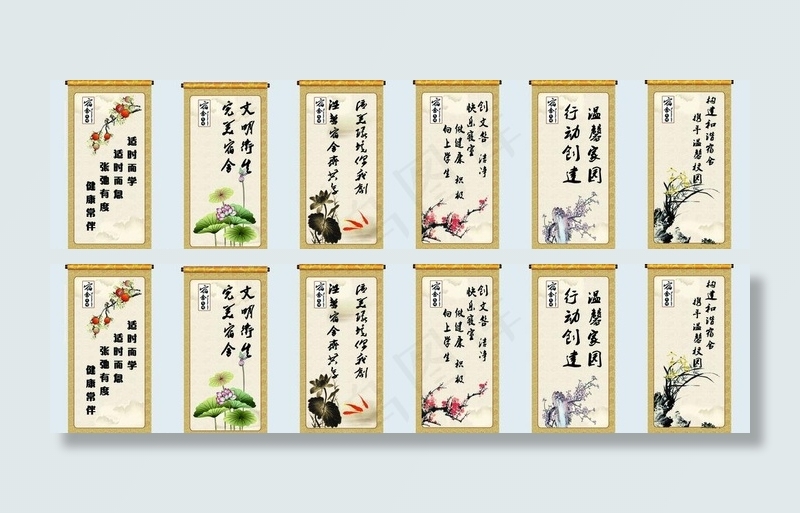 宿舍
适时而学
适时而息
张弛有度
健康常伴
文明卫生
完美宿舍
宿舍
优美环境你我创
宿舍
创文 洁净
快乐寝室
做健康 积极
向上学生
宿舍
温馨家园
行动创建
宿舍
构建和谐宿舍
携手温馨校园
宿舍
适时而学
适时而息
张弛有度
健康常伴
文明卫生
完美宿舍
宿舍
优美环境你我创
宿舍
创文 洁净
快乐寝室
做健康 积极
向上学生
宿舍
温馨家园
行动创建
宿舍
构建和谐宿舍
携手温馨校园